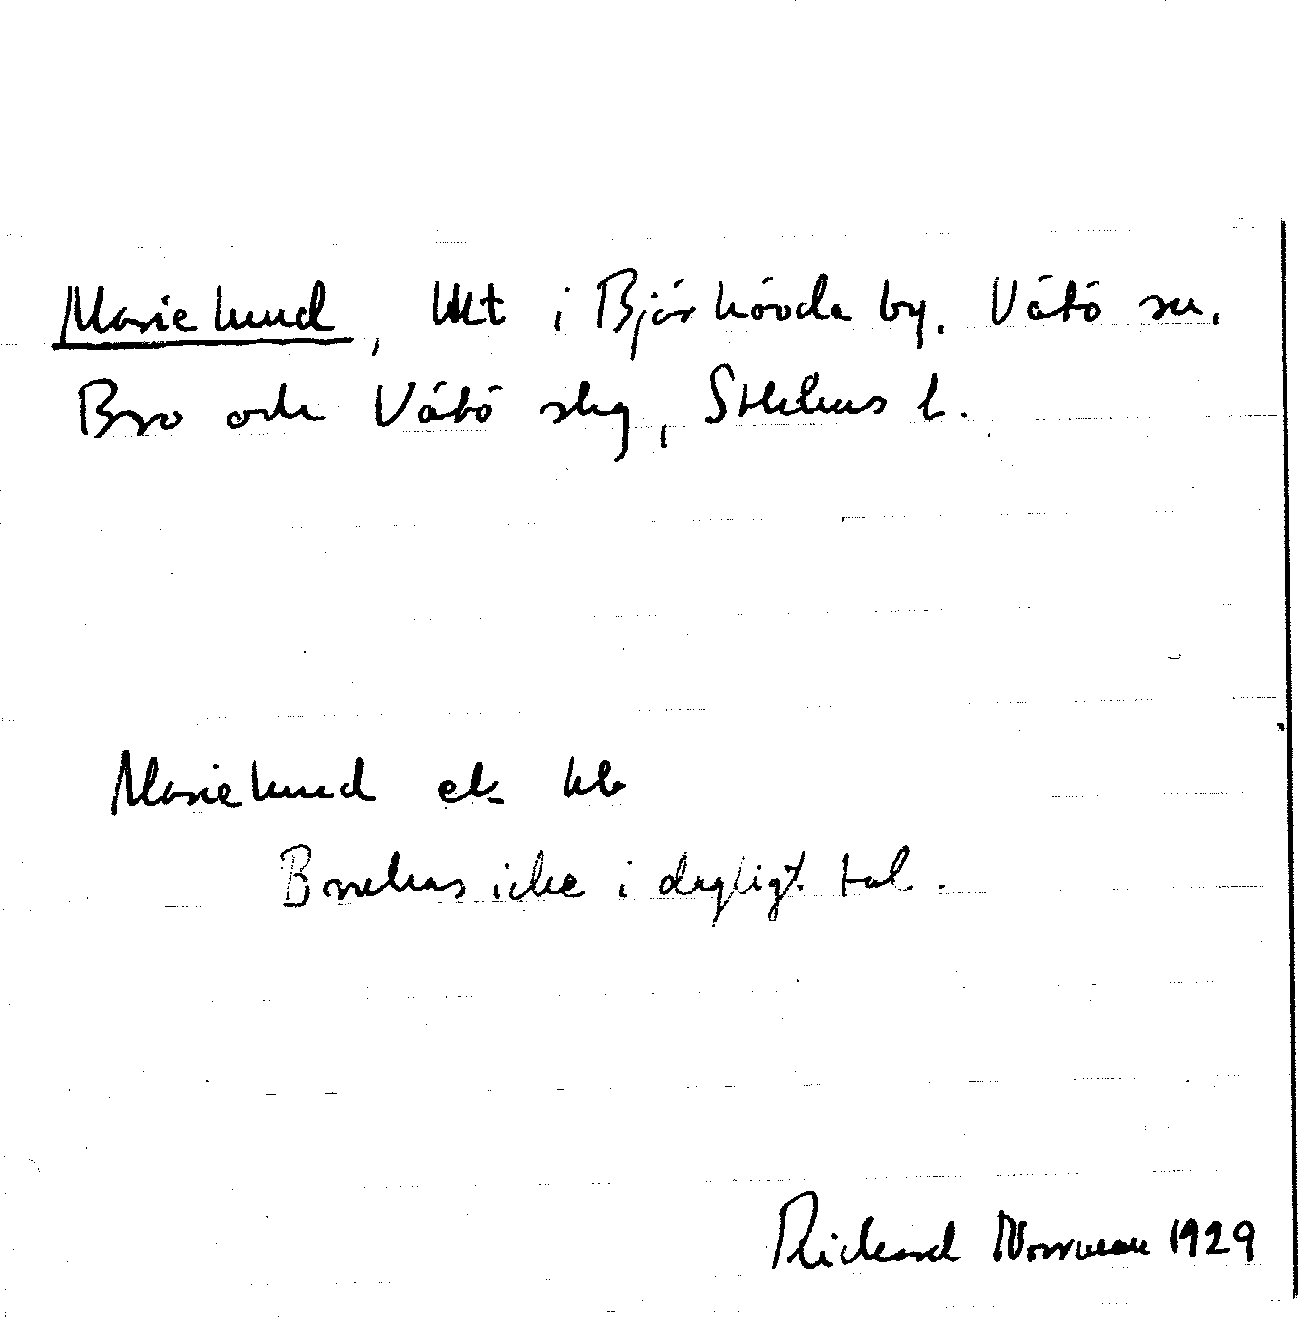 Marielund, lht i Björhövda by. Vätö sn.
Bro och Vätö slg, Sthlms l.
Marielund ek kb
Brukas icke i dagligt tal.
Rickard Norrman 1929